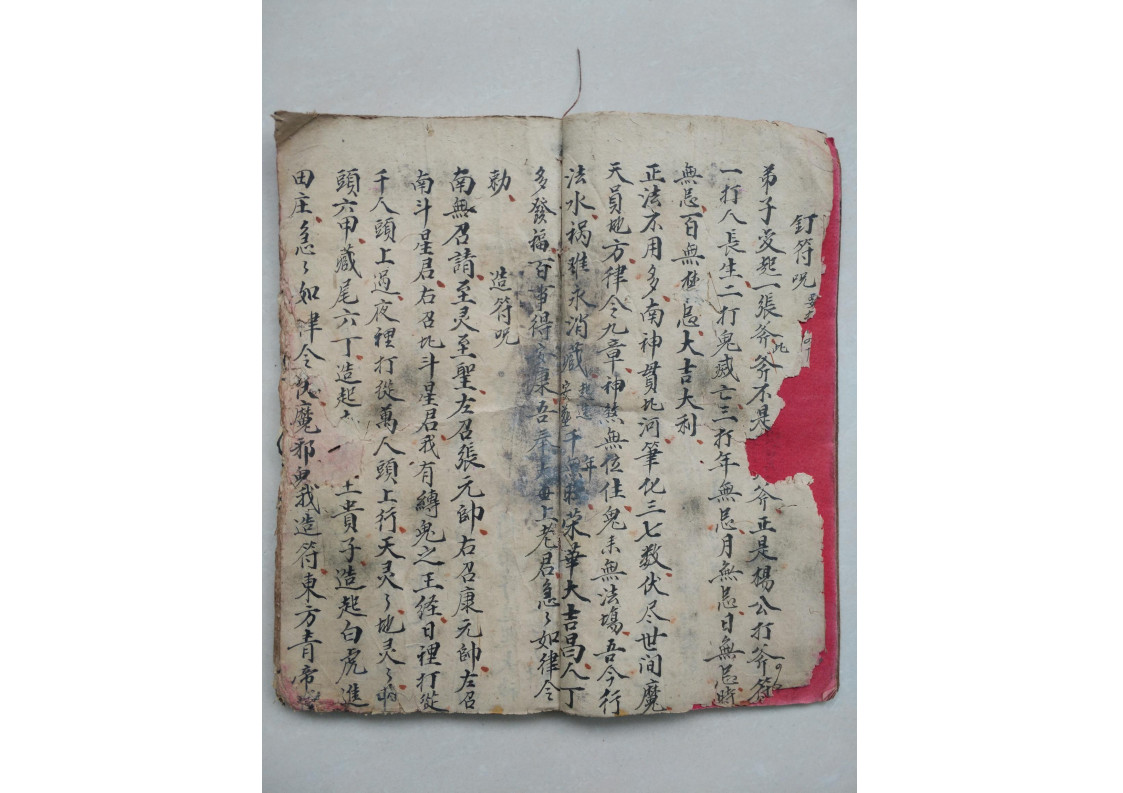 釘符呪
弟子爰起一張斧斧不是 此 斧正是楊公打斧符
一打人長生二打鬼滅亡三打年無忌月無忌日無忌時
無忌百無禁忌大吉大利
正法不用多南神貫北河筆化三七数伏尽世间魔
天員地方律令九章神煞無位住鬼未無法塲吾今行
法水祸雖永消藏 安 起造 千 年 荣華大吉昌人丁
多發福百事得 康吾奉 上老君急〻如律令
勅 造符呪
南無召請至灵至聖左召張元帥右召康元帥左召
南斗星君右召北斗星君我有縛鬼之王経日裡打從
千人頭上過夜裡打從萬人頭上行天灵〻地灵〻
頭六甲藏尾六丁造起 貴子造起白虎進
田庄急〻如律令 魔邪鬼我造符東方青帝